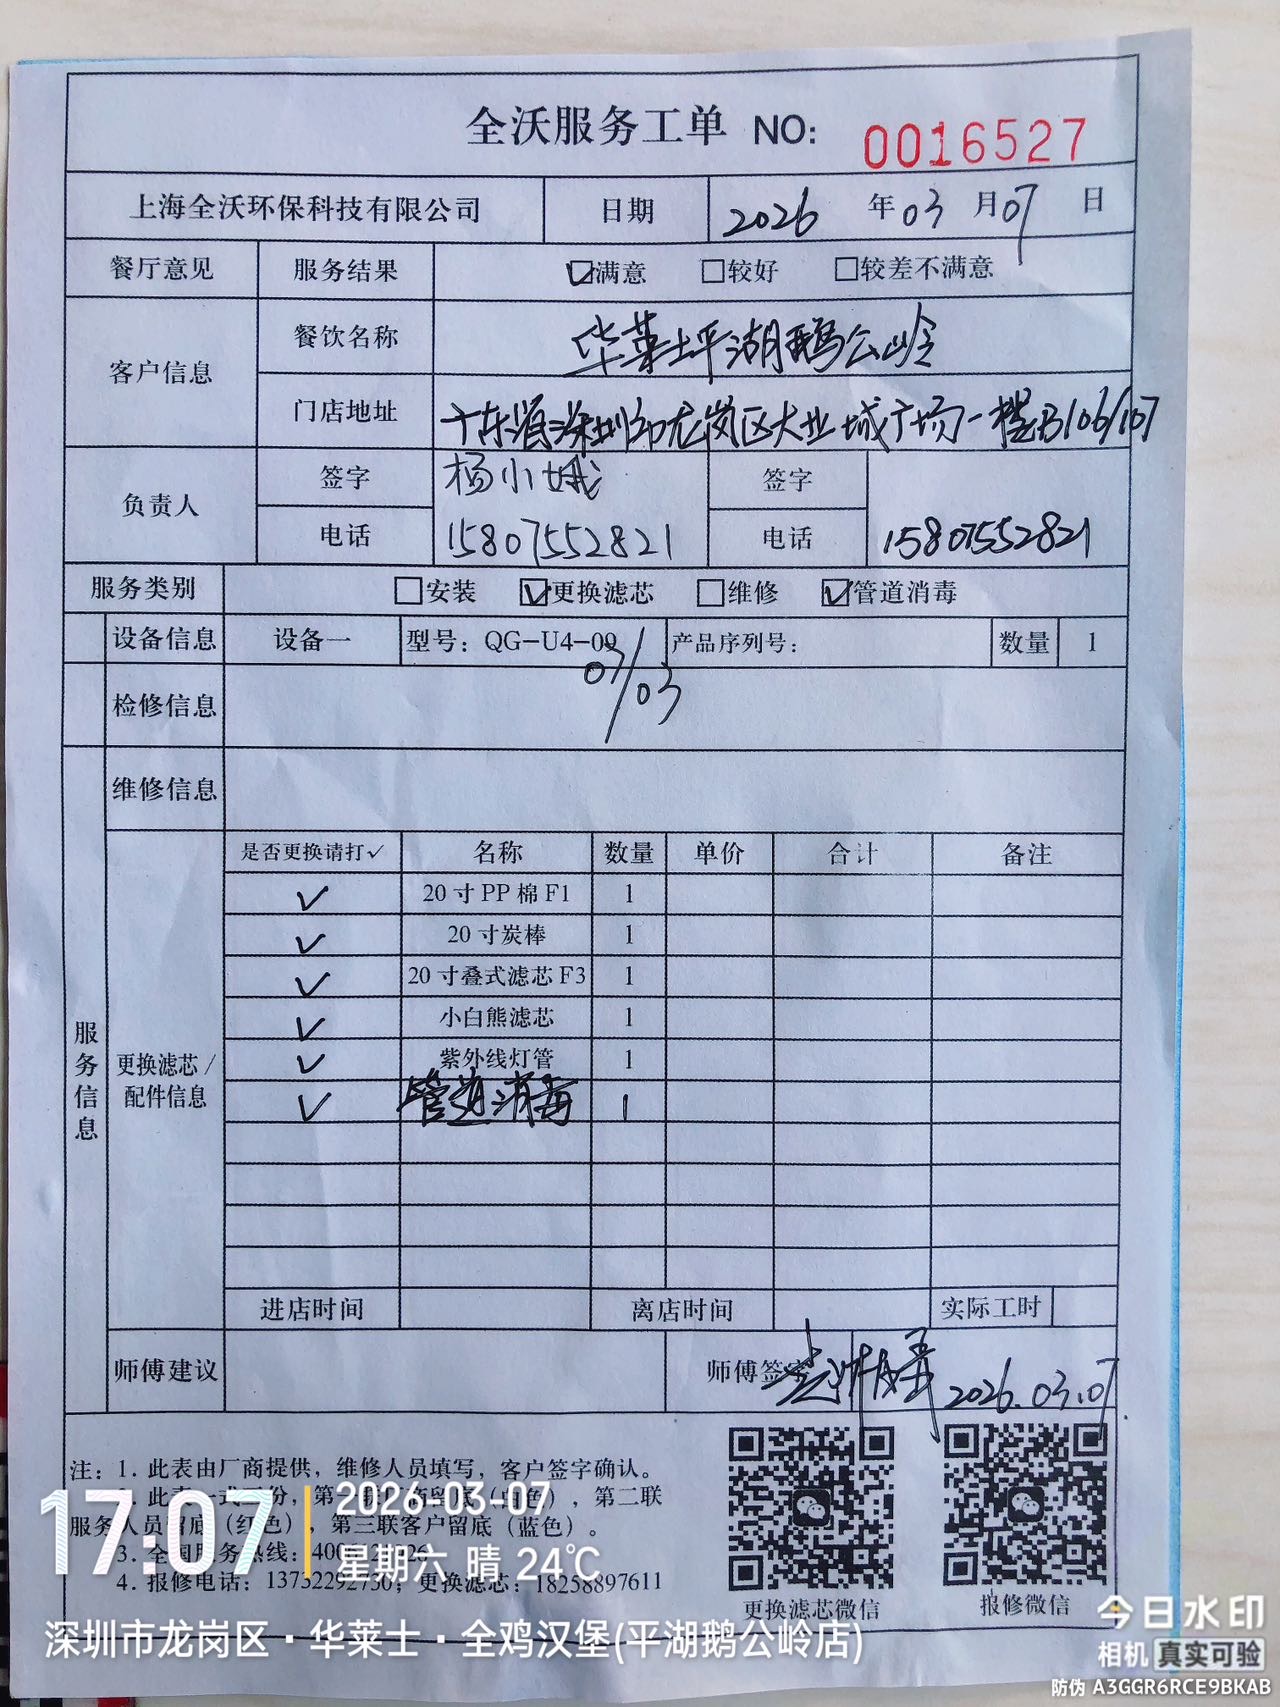 全沃服务工单 NO: 0016527
上海全沃环保科技有限公司 日期 2026 年 03 月 07 日
餐厅意见 服务结果 ☑满意 □较好 □较差不满意
客户信息 餐饮名称 华莱士平湖鹅公岭
门店地址 广东省深圳市龙岗区大业城广场一楼B106/107
负责人 签字 杨小娥 签字
电话 15807552821 电话 15807552821
服务类别 □安装 ☑更换滤芯 □维修 ☑管道消毒
设备信息 设备一 型号: QG-U4-09 产品序列号: 数量 1
07/03
检修信息
维修信息
服务信息
更换滤芯/配件信息
是否更换请打✓ 名称 数量 单价 合计 备注
✓ 20寸PP棉F1 1
✓ 20寸炭棒 1
✓ 20寸叠式滤芯F3 1
✓ 小白熊滤芯 1
✓ 紫外线灯管 1
✓ 管道消毒 1
进店时间 离店时间 实际工时
师傅建议 师傅签字 2026.03.07
注: 1. 此表由厂商提供，维修人员填写，客户签字确认。
此表一式 份，第 留底 ，第二联
服务人员留底（红色），第三联客户留底（蓝色）。
3. 全国服务热线: 400
4. 报修电话: 13732292730; 更换滤芯: 18258897611
更换滤芯微信 报修微信
17:07 2026-03-07
星期六 晴 24℃
深圳市龙岗区·华莱士·全鸡汉堡(平湖鹅公岭店)
今日水印
相机 真实可验
防伪 A3GGR6RCE9BKAB